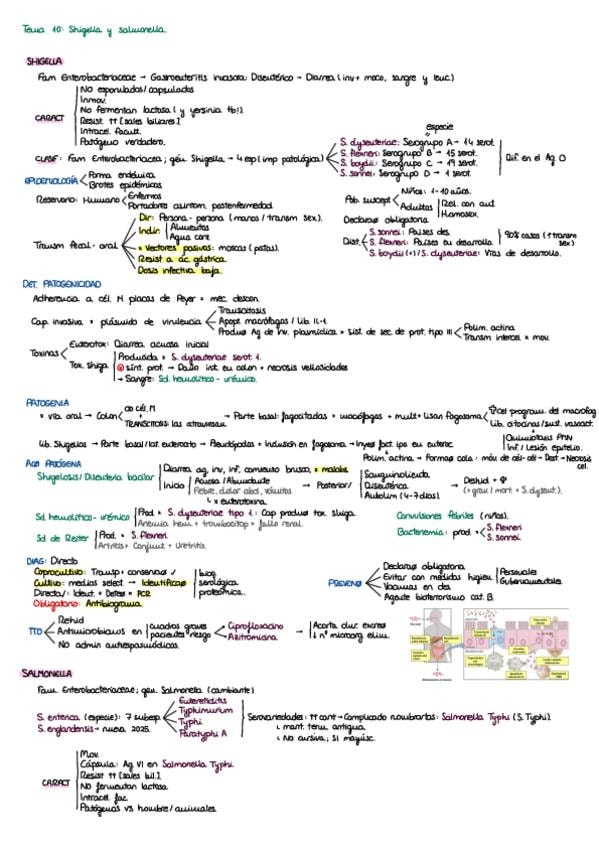 Tema 10: Shigella y salmonella.
SHIGELLA
Fam Enterobacteriaceae → Gastroenteritis invasora Disentérico → Diarrea (inv + moco, sangre y leuc)
CARACT
No esporuladas/capsuladas
Inmov.
No fermentan lactosa (y yersinia tb!).
Resist ↑↑ [sales biliares]
Intracel. facult.
Patógeno verdadero.
CLASIF: Fam Enterobacteriacea; gén. Shigella → 4 esp (imp patológica)
especie
S. dysenteriae: Serogrupo A → 14 serot.
S. flexneri: Serogrupo B → 15 serot.
S. boydii: Serogrupo C → 19 serot.
S. sonnei: Serogrupo D → 1 serot.
Dif. en el Ag O
EPIDEMIOLOGÍA
Forma endémica.
Brotes epidémicos
Reservorio: Humano
Enfermos
Portadores asintom, postenfermedad.
Pob. suscept
Niños: 1-10 años.
Adultos
Rel. con aut
Homosex.
Declarac obligatoria
Transm fecal-oral
Dir: Persona-persona (manos/transm sex).
Indir
Alimentos
Agua cont.
* Vectores pasivos: moscas (patas).
Resist a ac. gástrica.
Dosis infectiva baja.
Dist.
S. sonnei: Países des.
S. flexneri: Países en desarrollo.
S. boydii (+)/S. dysenteriae: Vías de desarrollo.
90% casos (↑ transm sex)
DET. PATOGENICIDAD
Adherencia a cél. M placas de Peyer * mec. descon.
Cap. invasiva * plásmido de virulencia
Transcitosis
Apopt. macrófagos / Lib. IL-1.
Produc Ag de inv. plasmídica * Sist. de sec. de prot. tipo III
Polim. actina
Transm intercel. * mov.
Toxinas
Enterotox: Diarrea acuosa inicial
Tox. shiga
Producida * S. dysenteriae serot. 1.
sínt. prot. → Daño int. en colon + necrosis vellosidades
→ Sangre: Sd. hemolítico-urémico.
PATOGENIA
* Vía oral → Colon
TRANSCITOSIS: las atraviesan
→ Parte basal: fagocitadas * macrófagos + mult + lisan fagosoma
Lib. citocinas/sust. vasoact.
Quimiotaxis PMN
Inf./Lesión epitelio.
Lib. Shigellas → Parte basal/lat. enterocito → Pseudópodos + Inclusión en fagosoma
Polim. actina → Forma cola: mov. de cél-cél → Dest. → Necrosis cel.
Acc PATÓGENA
Shigelosis/Disentería bacilar
Diarrea ag. inv, inf, comienzo brusco, * malabs
Inicio
Acuosa/Abundante
Fiebre, dolor abd, vómitos
↳ * enterotoxina
Posterior/
Sanguinolienta
Disentérica
Autolim (4-7 días).
→ Deshid + Φ
(+ grav./mort. + S. dysent.).
Sd. hemolítico-urémico
Prod * S. dysenteriae tipo 1: Cap produc tox. shiga.
Anemia hem + trombocitop + fallo renal.
Convulsiones febriles (niños).
Sd. de Reiter
Prod. * S. flexneri
Artritis + Conjunt + Uretritis.
Bacteriemia: prod *
S. flexneri
S. sonnei
DIAG: Directo
Coprocultivo: Transp + conservac /
Cultivo: medios select → Identificac
bioq.
serológica.
proteómica.
Directo/: Ident. + Detec * PCR
Obligatorio: Antibiograma.
PREVENC
Declarac obligatoria
Evitar con medidas higien
Personales
Gubernamentales.
Vacunas en des.
Agente bioterrorismo cat. B.
TTO
Rehid
Antimicrobianos en
cuadros graves
pacientes riesgo
Ciprofloxacino
Azitromicina
→ Acorta dur. excrec
↓ nº microorg elim.
No admin antiespasmódicos.
SALMONELLA
Fam. Enterobacteriaceae; gén. Salmonella (cambiante)
S. enterica (especie): 7 subesp.
Enteritidis
Typhimurium
Typhi
Paratyphi A
Serovariedades: ↑↑ cant → Complicado nombrarlas: Salmonella Typhi (S. Typhi).
↳ mant. term. antigua
↳ No cursiva; SI mayúsc.
→ nueva 2025.
CARACT
Mov.
Cápsula: Ag VI en Salmonella Typhi.
Resist ↑↑ [sales bil.]
No fermentan lactosa.
Intracel. fac.
Patógenos vs hombre/animales.